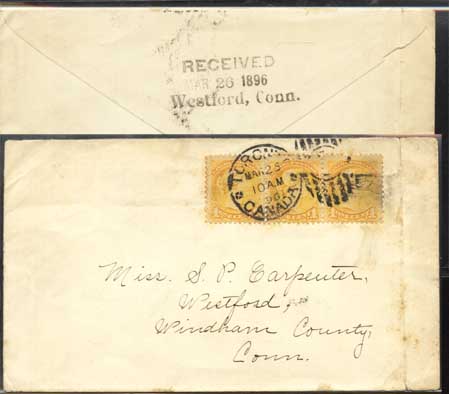 RECEIVED
MAR 26 1896
Westford, Conn.
TORONTO
MAR 25
10 AM
96
CANADA
Miss. S. P. Carpenter,
Westford,
Windham County,
Conn.